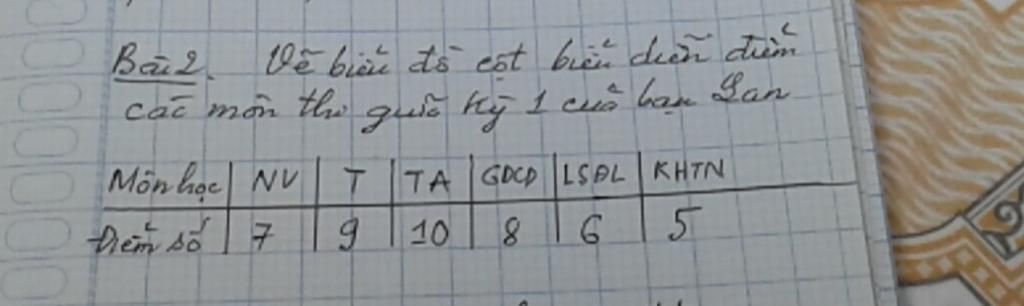 Bài 2. Vẽ biểu đồ cột biểu diễn điểm
các môn thi giữa kỳ 1 của bạn Lan
Môn học | NV | T | TA | GDCD | LSĐL | KHTN
Điểm số | 7 | 9 | 10 | 8 | 6 | 5